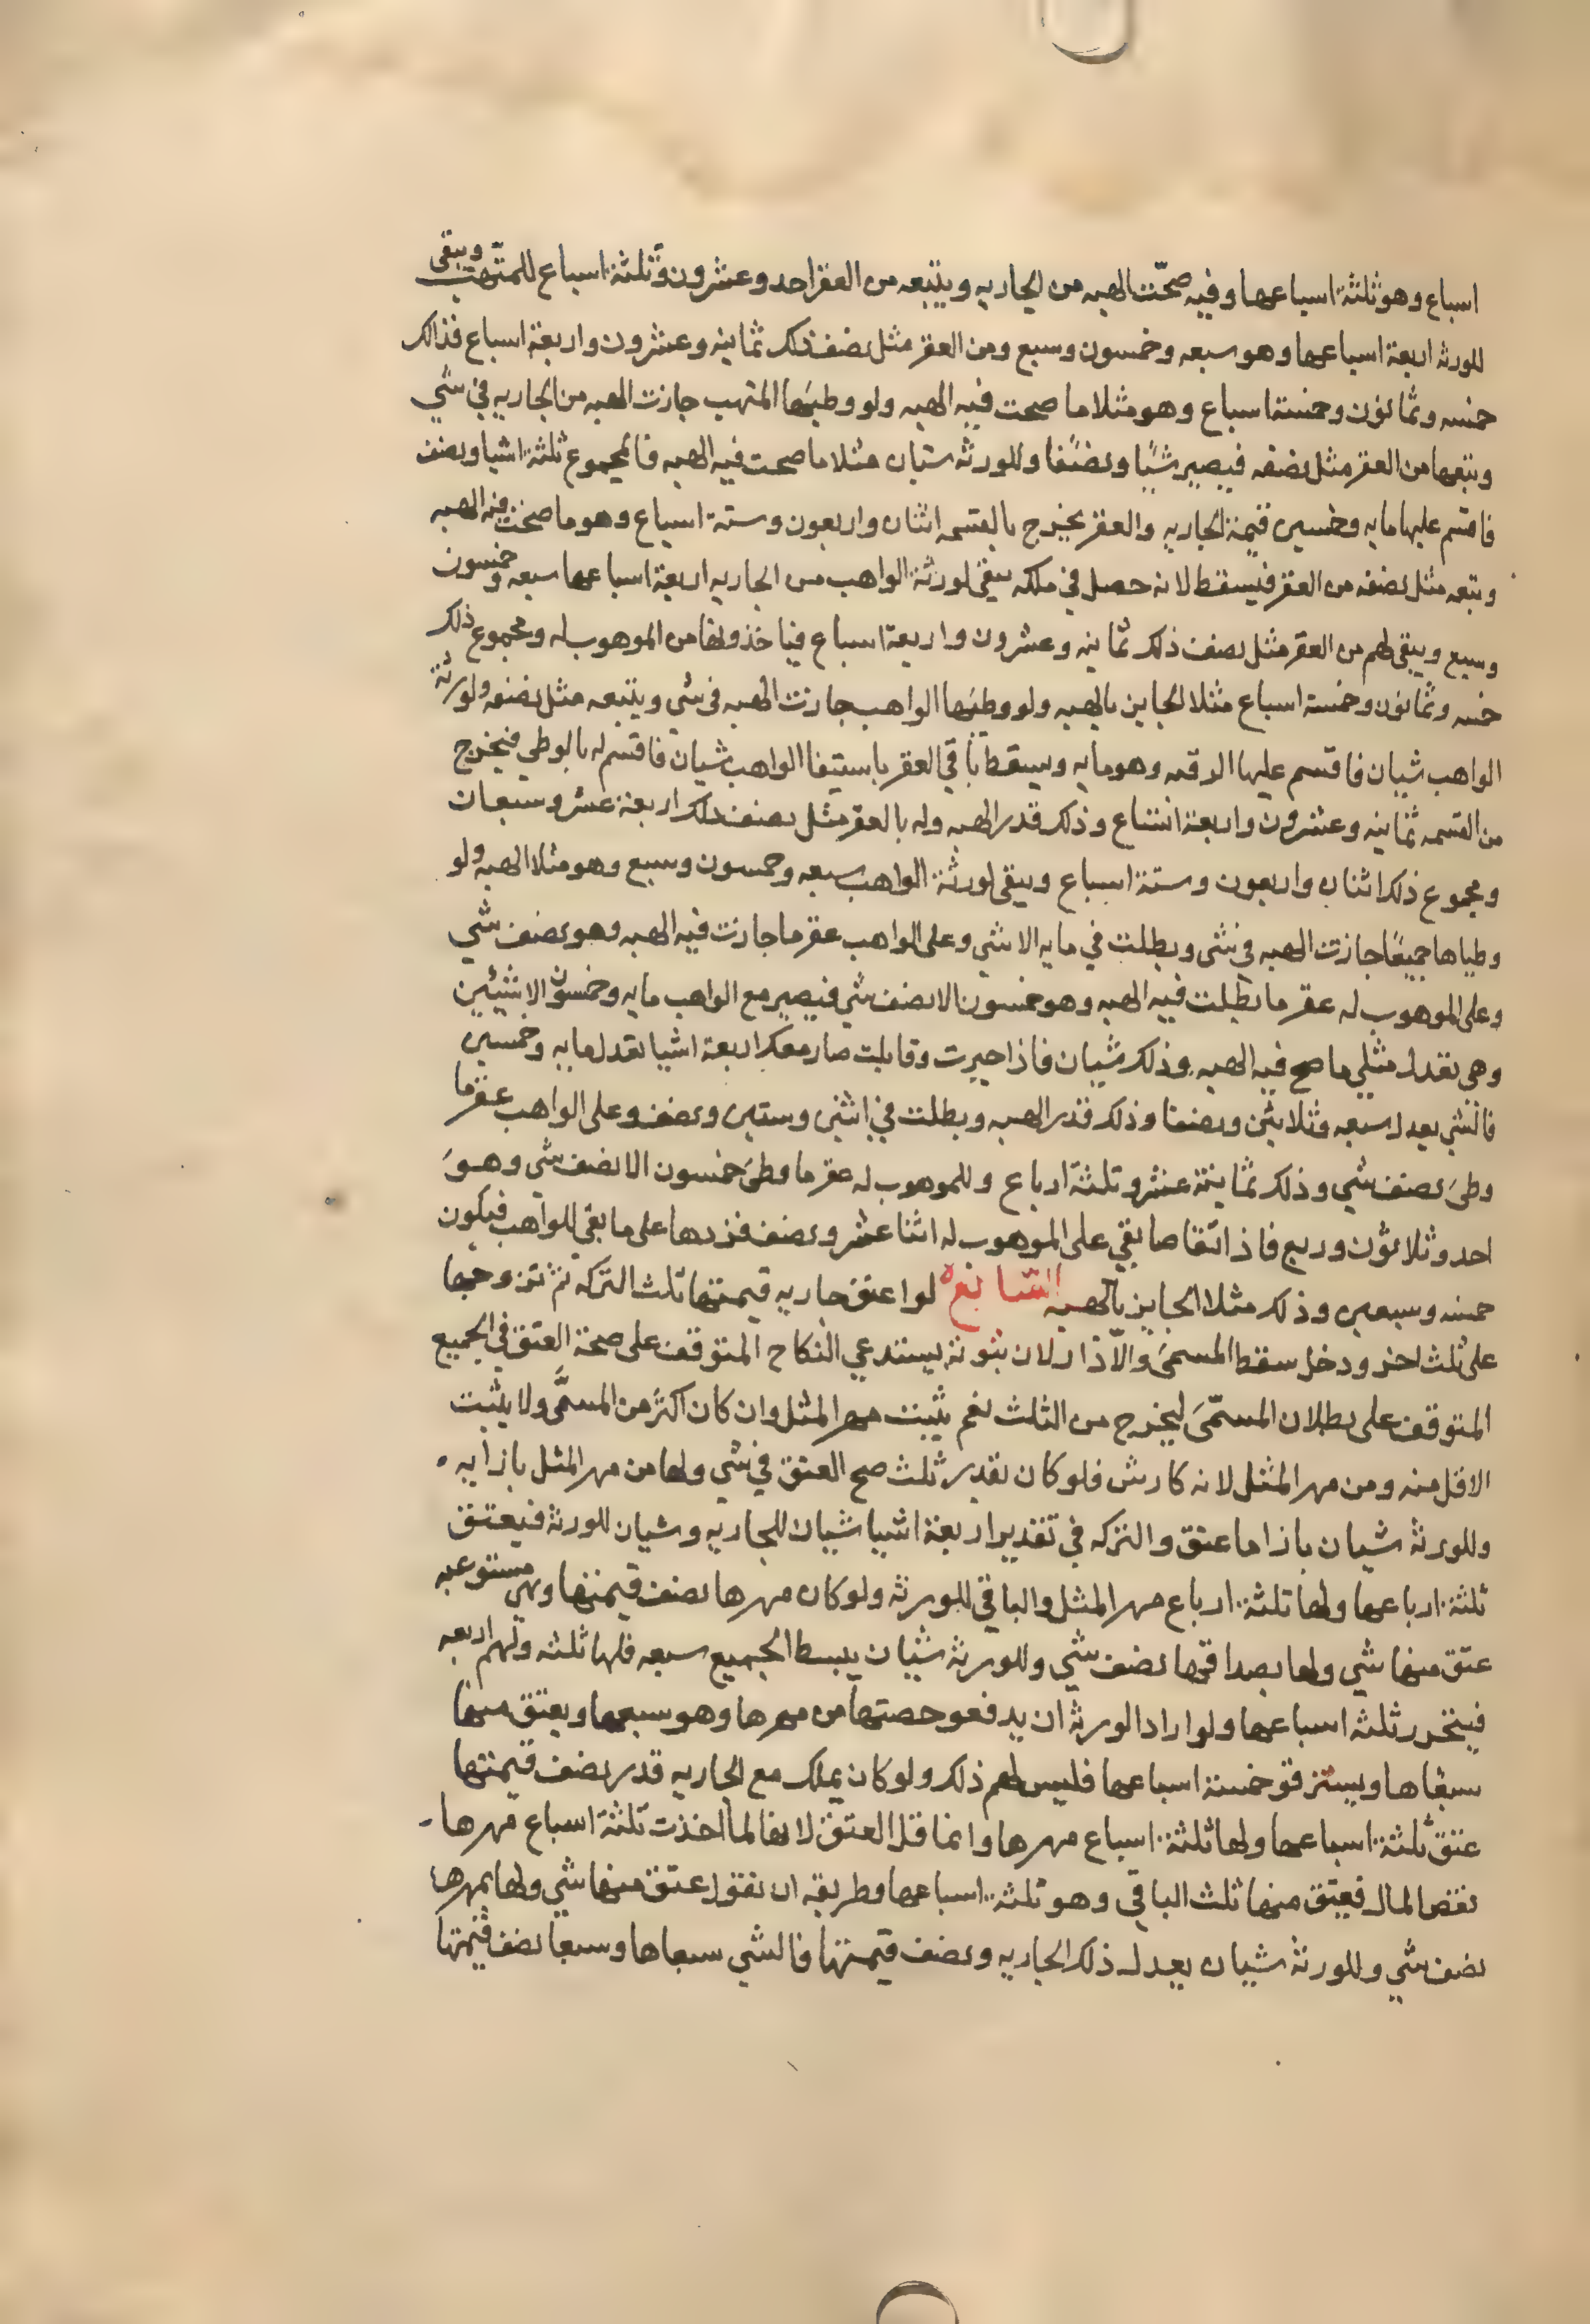 اسباع وهو ثلثة اسباعها وفيه صحّت الهبه من الجاريه ويتبعه من العقر احد وعشرون وثلثة اسباع للمتّهب ويبقى
للورثه اربعة اسباعها وهو سبعه وخمسون وسبع ومن العقر مثل نصف ذلك ثمانيه وعشرون واربعة اسباع فذالك
خمسه وثمانون وخمسة اسباع وهو مثلا ما صحت فيه الهبه ولو وطيها المتهب جازت الهبه من الجاريه في شي
ويتبعها من العقر مثل نصفه فيصير شيًا ونصفًا وللورثه شيان مثلا ما صحت فيه الهبه فالمجموع ثلثة اشيا ونصف
فاقسم عليها مايه وخمسين قيمة الجاريه والعقر يخرج بالقسمه اثنان واربعون وستة اسباع وهو ما صحت فيه الهبه
وتبعه مثل نصفه من العقر فيسقط لانه حصل في ملكه يبقى لورثة الواهب من الجاريه اربعة اسباعها سبعه وخمسون
وسبع ويبقى لهم من العقر مثل نصف ذلك ثمانيه وعشرون واربعة اسباع فياخذونها من الموهوب له ومجموع ذلك
خمسه وثمانون وخمسة اسباع مثلا الجايز بالهبه ولو وطيها الواهب جازت الهبه في شي ويتبعه مثل نصفه ولورثة
الواهب شيان فاقسم عليها الرقبه وهو مايه ويسقط باقي العقر باستيفا الواهب شيان فاقسم له بالوطي فيخرج
من القسمه ثمانيه وعشرون واربعة اسباع وذلك قدر الهبه وله بالعقر مثل نصف ذلك اربعة عشر وسبعان
ومجموع ذلك اثنان واربعون وستة اسباع ويبقى لورثة الواهب سبعه وخمسون وسبع وهو مثلا الهبه ولو
وطياها جميعًا جازت الهبه في شي وبطلت في مايه الا شي وعلى الواهب عقر ما جازت فيه الهبه وهو نصف شي
وعلى الموهوب له عقر ما بطلت فيه الهبه وهو خمسون الا نصف شي فيصير مع الواهب مايه وخمسون الا شيئين
وهي تعدل مثلي ما صح فيه الهبه وذلك شيان فاذا جبرت وقابلت صار معك اربعة اشيا تعدل مايه وخمسين
فالشي يعدل سبعه وثلاثين ونصفا وذلك قدر الهبه وبطلت في اثنين وستين ونصف وعلى الواهب عقر ما
وطئ نصف شي وذلك ثمانية عشر وثلثة ارباع وللموهوب له عقر ما وطئ خمسون الا نصف شي وهو
احد وثلاثون وربع فاذا تقاصا بقي على الموهوب له اثنا عشر ونصف فزدها على ما بقي للواهب فيكون
خمسه وسبعين وذلك مثلا الجايز بالهبه السابعه لو اعتق جاريه قيمتها ثلث التركه ثم تزوجها
على ثلث اخر ودخل سقط المسمى والا دار لان ثبوته يستدعي النكاح المتوقف على صحة العتق في الجميع
المتوقف على بطلان المسمّى ليخرج من الثلث نعم يثبت مهر المثل وان كان اكثر من المسمَّى ولا يثبت
الاقل منه ومن مهر المثل لانه كارش فلو كان بقدر ثلث صح العتق في شي ولها من مهر المثل بازايه
وللورثه شيان بازا ما عتق والتركه في تقدير اربعة اشيا شيان للجاريه وشيان للورثه فيعتق
ثلثة ارباعها ولها ثلثة ارباع مهر المثل والباقي للورثه ولو كان مهرها نصف قيمتها وهي مستوعبه
عتق منها شي ولها بصداقها نصف شي وللورثه شيان يبسط الجميع سبعه فلها ثلثه ولهم اربعه
فيتحرر ثلثه اسباعها ولو اراد الورثه ان يدفعو حصتها من مهرها وهو سبعها ويعتق منها
سبعاها ويسترقو خمسة اسباعها فليس لهم ذلك ولو كان يملك مع الجاريه قدر نصف قيمتها
عتق ثلثة اسباعها ولها ثلثة اسباع مهرها وانما قل العتق لانها لما اخذت ثلثة اسباع مهرها
نقص المال فيعتق منها ثلث الباقي وهو ثلثة اسباعها وطريقه ان نقول عتق منها شي ولها بمهرها
نصف شي وللورثه شيان يعدل ذلك الجاريه ونصف قيمتها فالشي سبعاها وسبعا نصف قيمتها